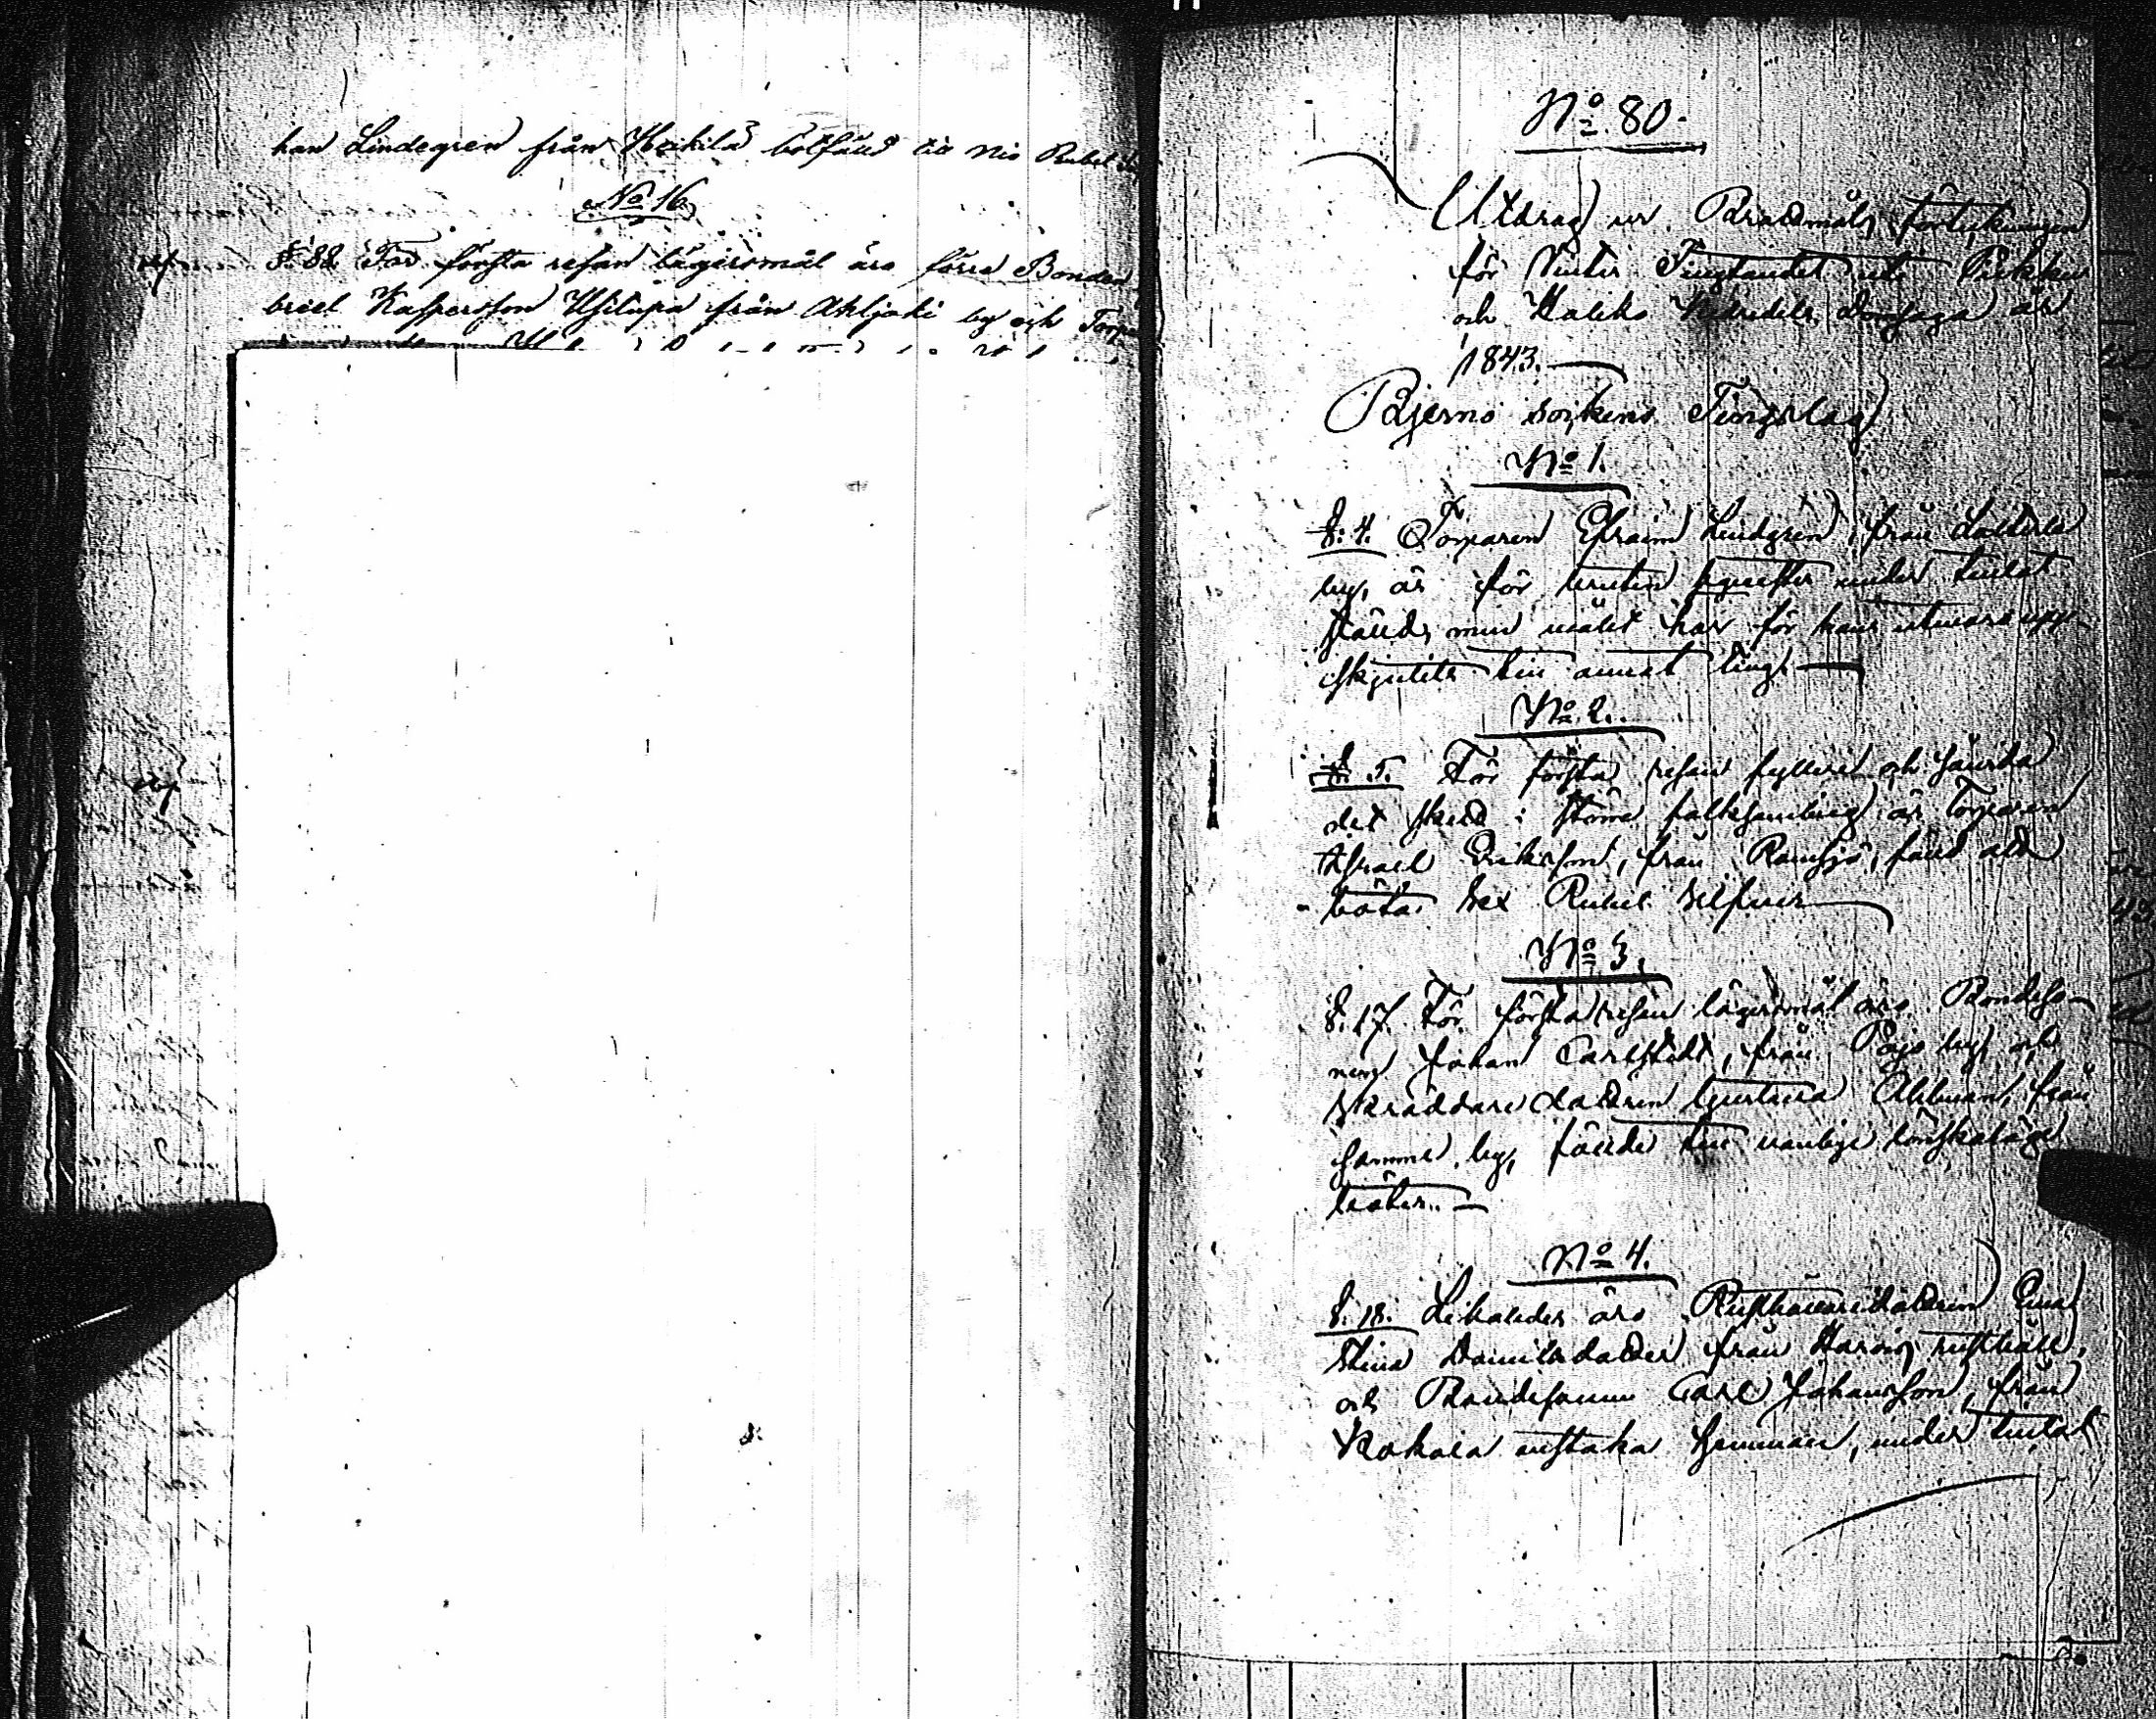 han Lindegren från Heikilä botfäld till nio Rubel
No 16
§. 88. För första resan lägersmål äro förre Bonden
briel Kaspersson Usilupa från Ahljoki by och Torpa
No. 80.
Utdrag ur Brottmåls förtekningen
för Vinter Tingtandet uti Pikkis
och Haliko Häradets Domsaga år
1843.
Bjerno sockens Tingslag
No 1.
§. 4. Torparen Efraim Lindgren, från
by, är för under tiltal
stäld, men målet har för hans utevaro upp-
skjutits till annat ting.
No 2.
§. 5. För första resan fylleri och
det skedd i större folksamling är Torparen
Israel Eriksson, från Ramsjö, fäld att
böta sex Rubel silfver
No 3.
§. 17. För första resan lägersmål äro Bondeso-
nen Johan Carlstedt, från Pojo by, och
Skräddaredottren Gustava Ahlman, från
samma by, fälde till vanliga lönskaläge
böter.
No 4.
§. 18. Likaledes äro Rusthållaredottren
Stina Danielsdotter från rusthåll,
och Bondesonen Carl Johansson, från
Kokkila hemman, under tiltal